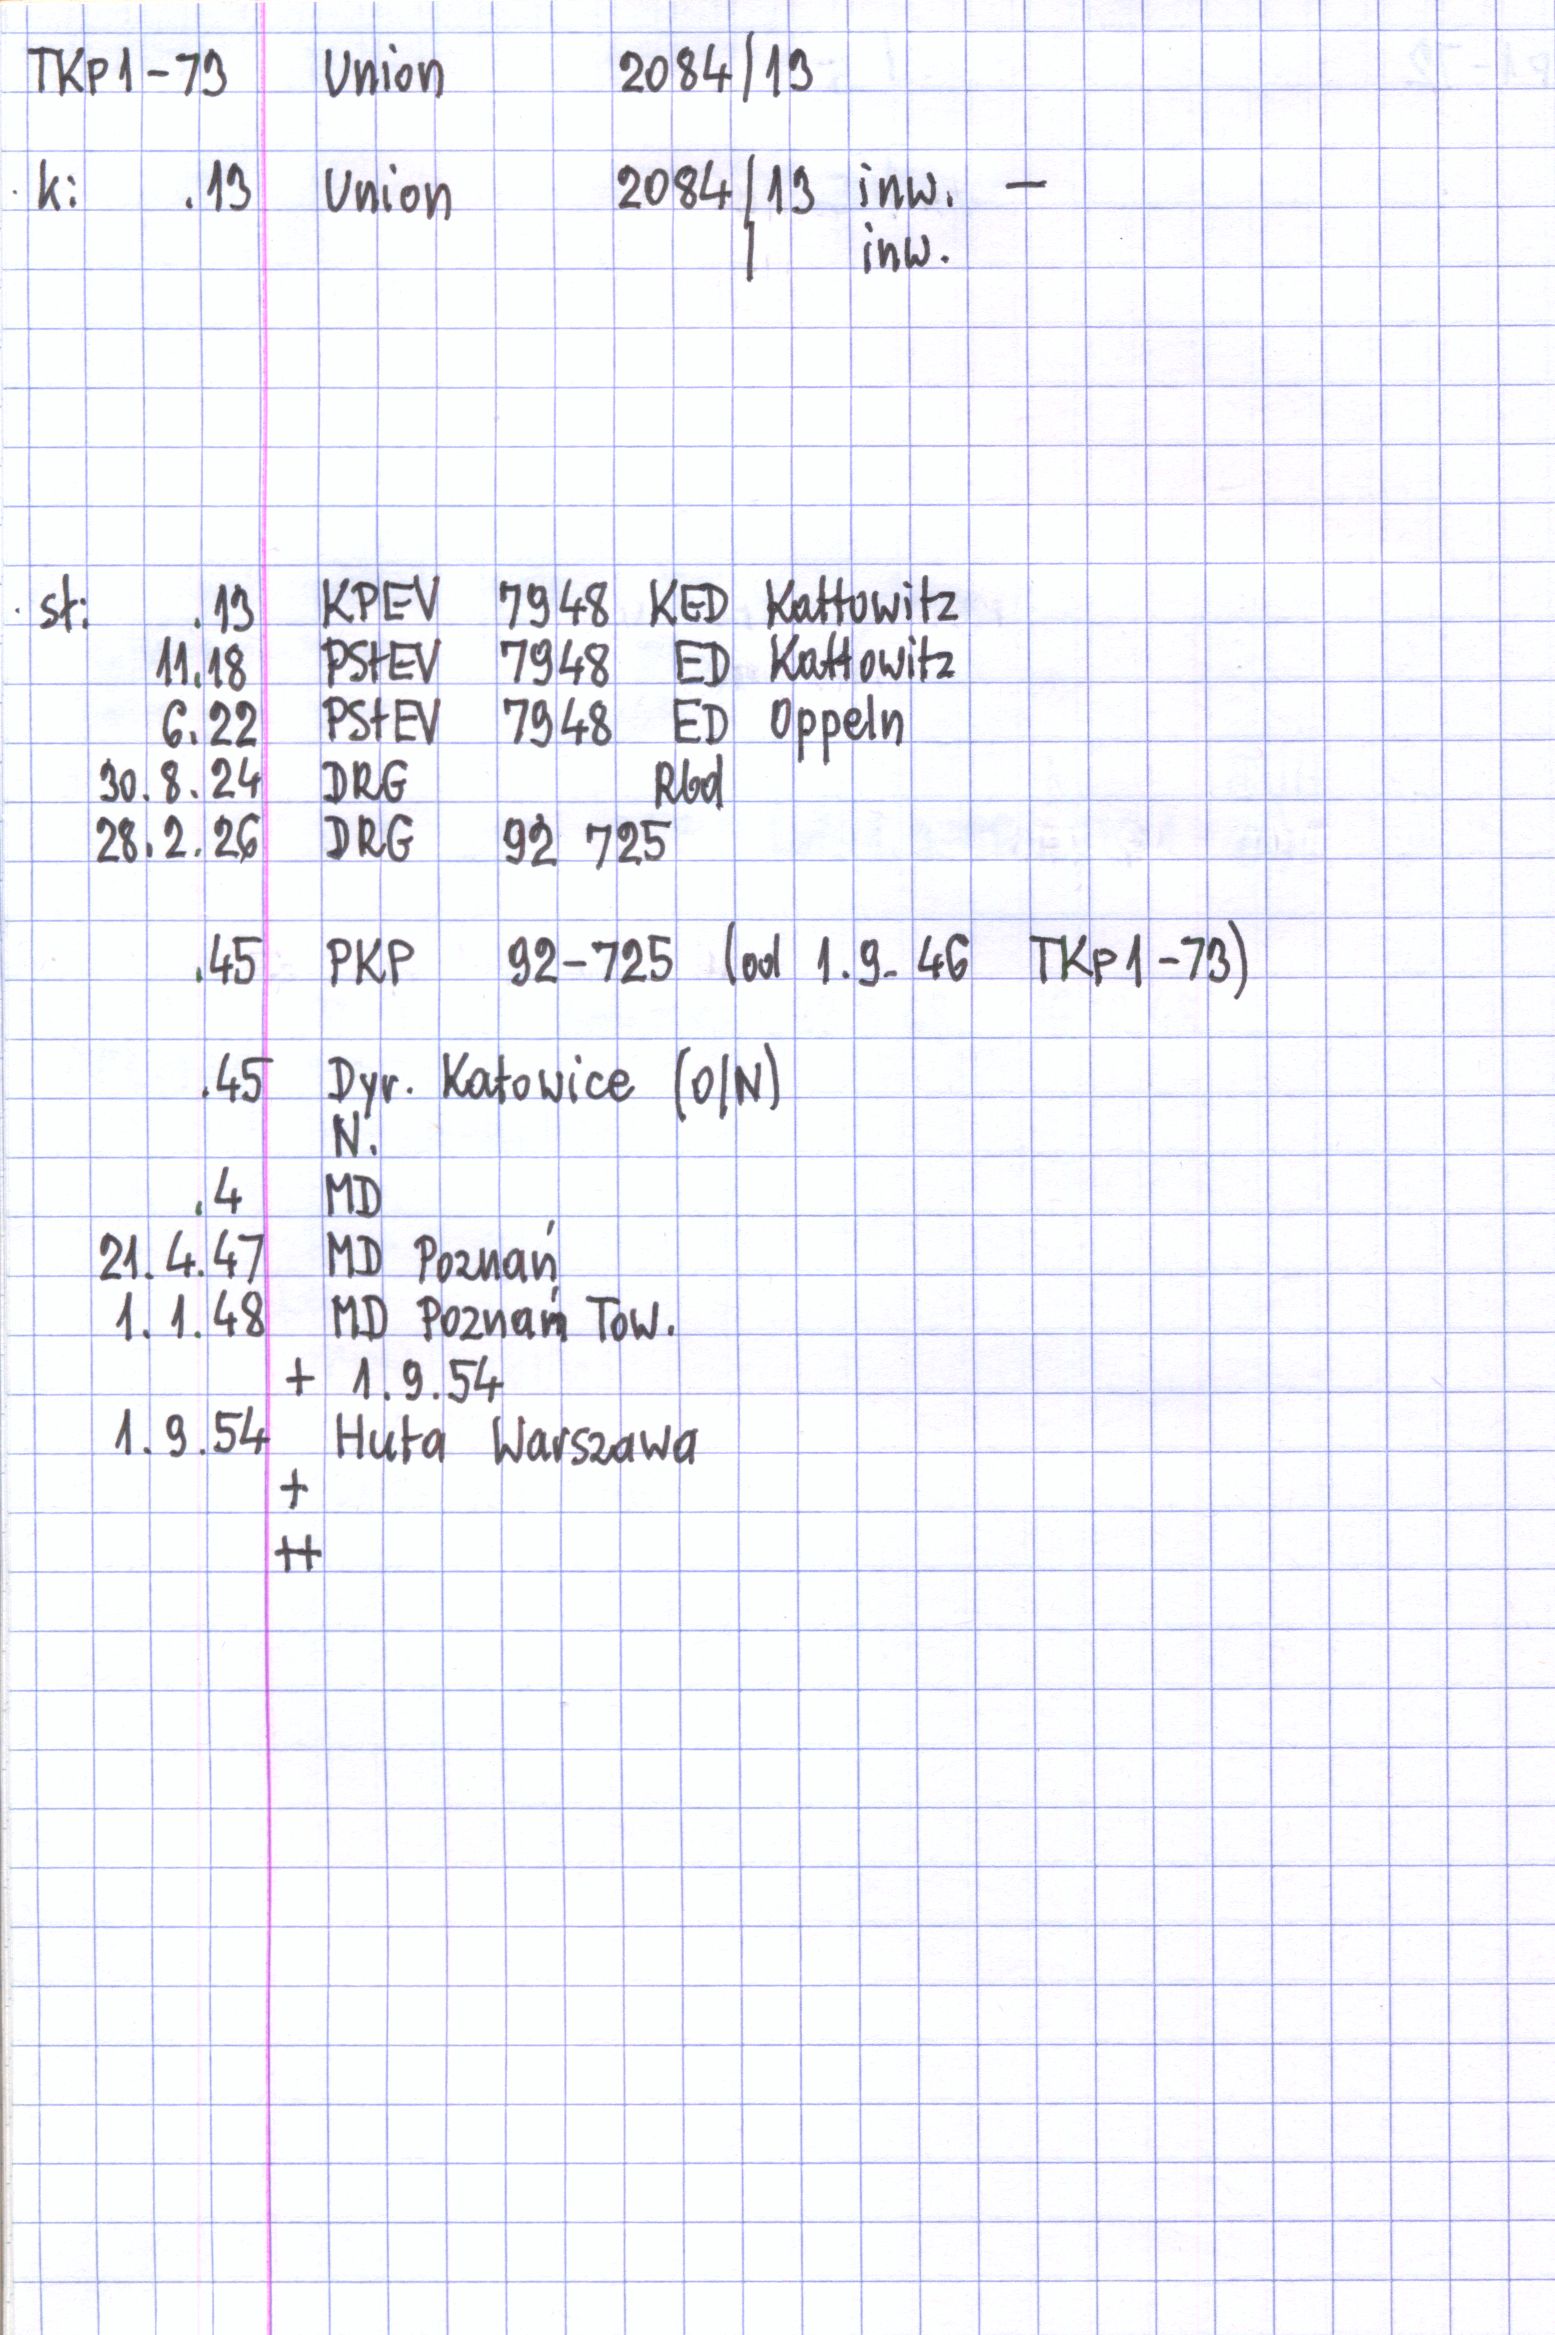 TKp1-73 Union 2084/13
k: .13 Union 2084/13 inw. —
/ inw.
st: .13 KPEV 7948 KED Kattowitz
11.18 PStEV 7948 ED Kattowitz
6.22 PStEV 7948 ED Oppeln
30.8.24 DRG Rbd
28.2.26 DRG 92 725
.45 PKP 92-725 (od 1.9.46 TKp1-73)
.45 Dyr. Katowice (O/N)
N.
.4 MD
21.4.47 MD Poznań
1.1.48 MD Poznań Tow.
+ 1.9.54
1.9.54 Huta Warszawa
+
++